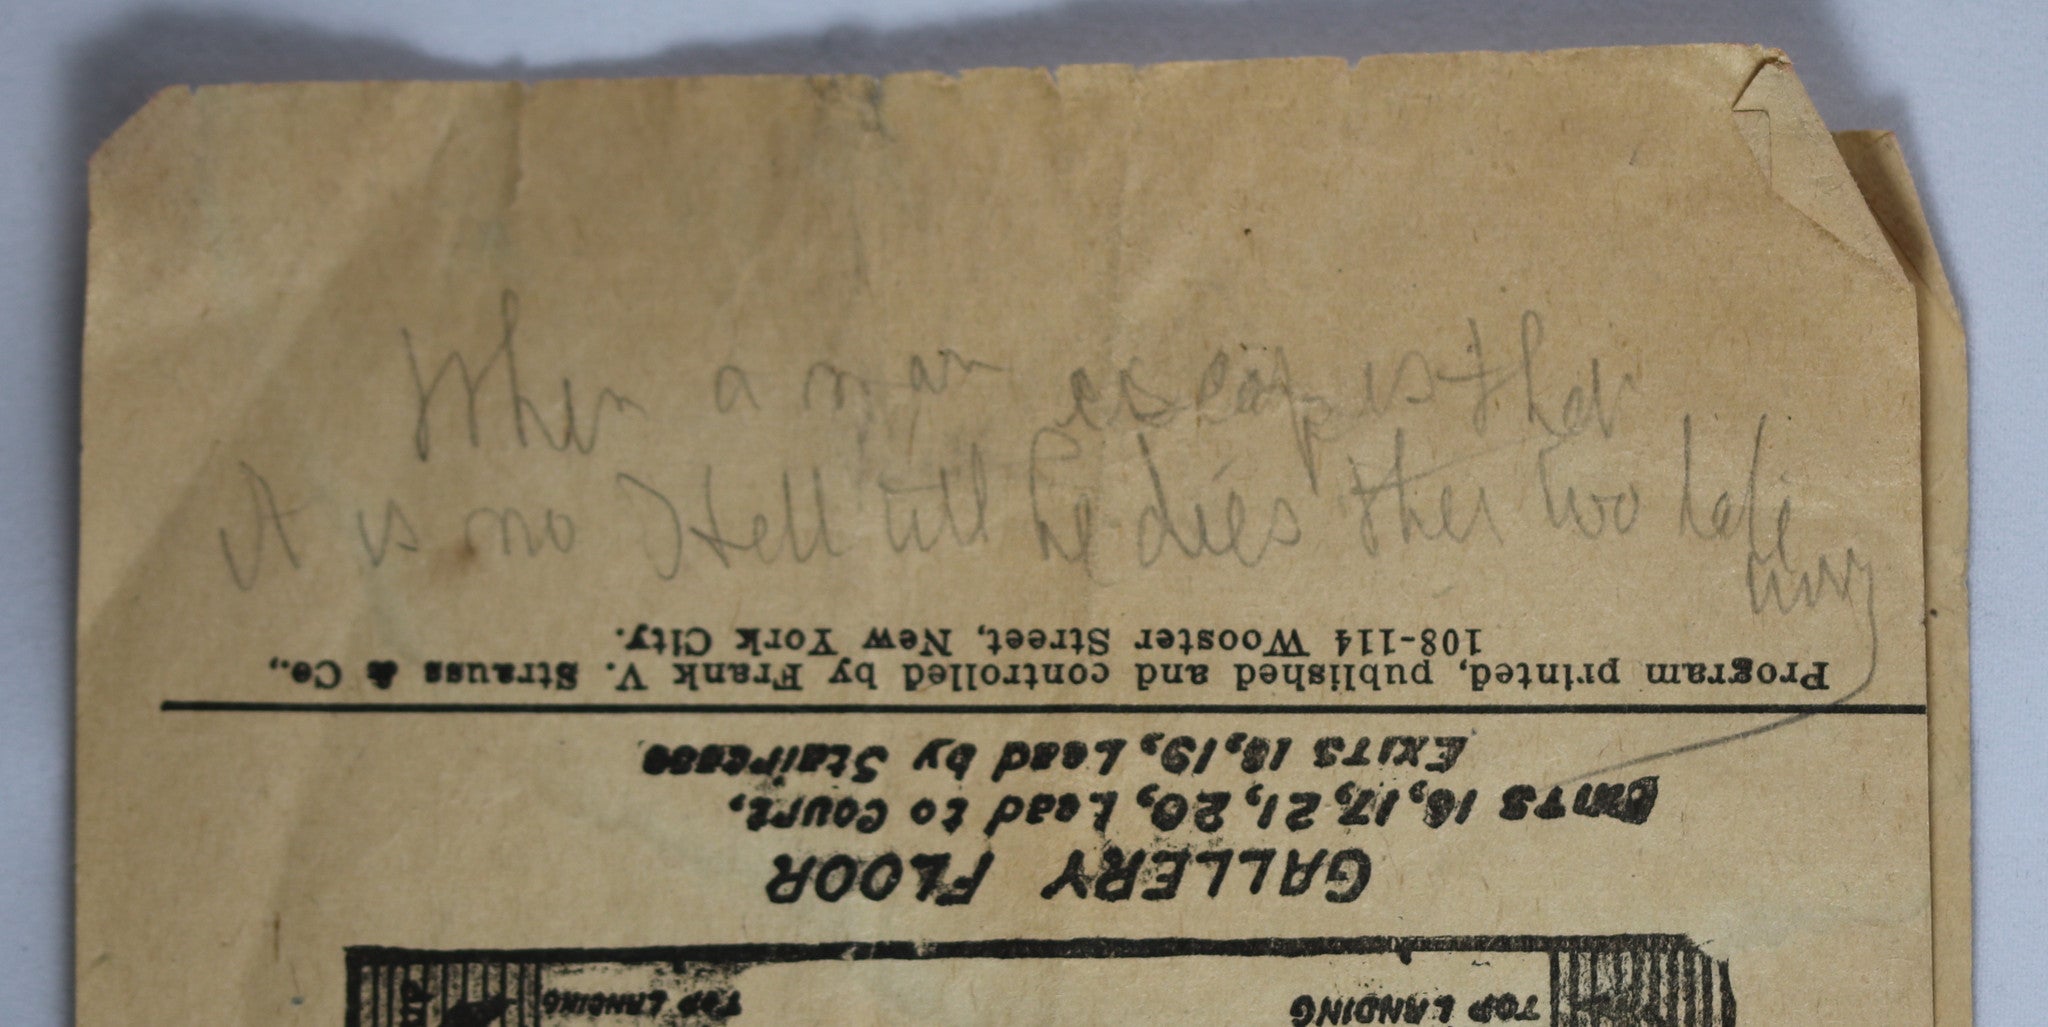 When a man escapes that
it is no Hell till he dies then two late
Program printed, published and controlled by Frank V. Strauss & Co.,
108-114 Wooster Street, New York City.
EXITS 18, 19, Lead by Staircase
EXITS 16, 17, 21, 20, Lead to Court,
GALLERY FLOOR
TOP LANDING
TOP LANDING